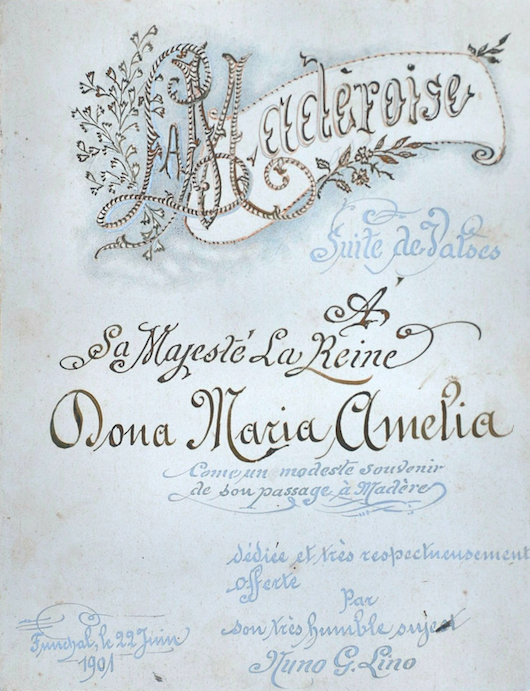 La Madèroise
Suite de Valses
À
Sa Majesté La Reine
Dona Maria Amelia
Come un modeste souvenir
de son passage à Madère
dédiée et très respectueusement
offerte
Par
son très humble sujet
Nuno G. Lino
Funchal, le 22 Juin
1901